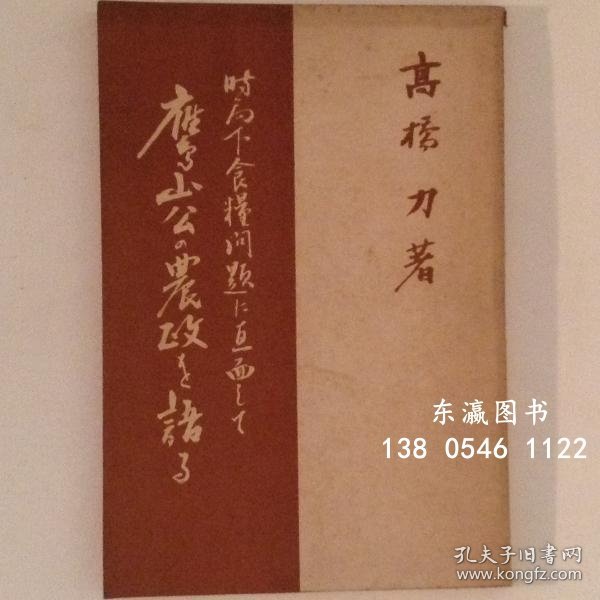 高橋 力 著
時局下食糧問題に直面して
鷹山公の農政を語る
东瀛图书
138 0546 1122
孔夫子旧书网
www.kongfz.com